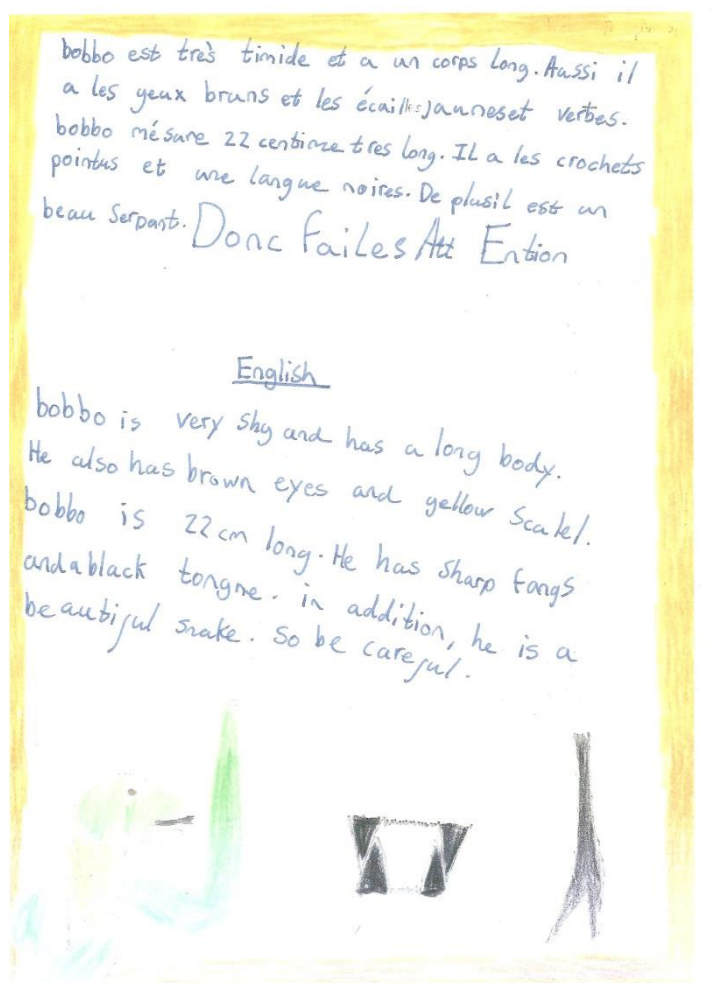 bobbo est très timide et a un corps long. Aussi il
a les yeux bruns et les écailles jauneset verbes.
bobbo mésure 22 centime tres long. IL a les crochets
pointus et une langue noires. De plusil est un
beau Serpant. Donc failes Att Ention
English
bobbo is very shy and has a long body.
He also has brown eyes and yellow Scalel.
bobbo is 22 cm long. He has Sharp fangs
and a black tongne. in addition, he is a
beautiful snake. So be careful.